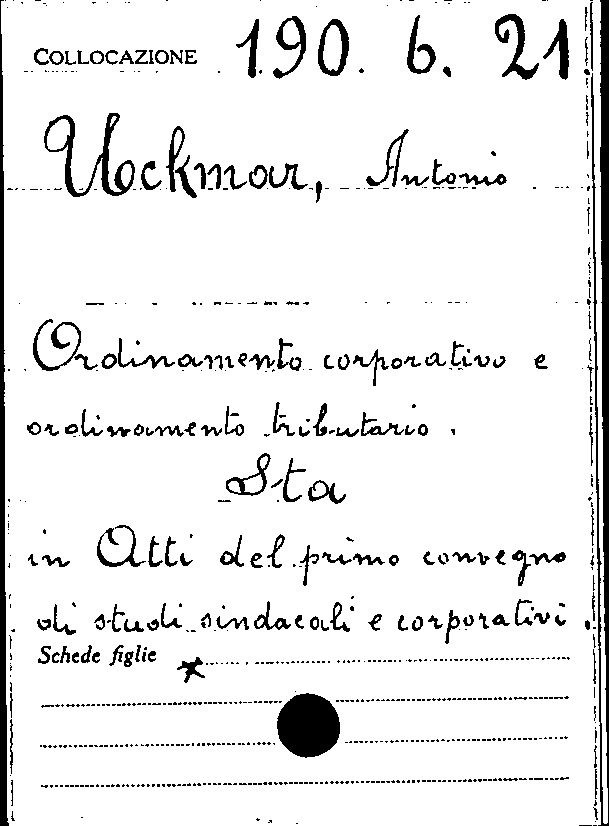 COLLOCAZIONE 190. 6. 21
Uckmar, Antonio
Ordinamento corporativo e
ordinamento tributario.
Sta
in Atti del primo convegno
di studi sindacali e corporativi.
Schede figlie *